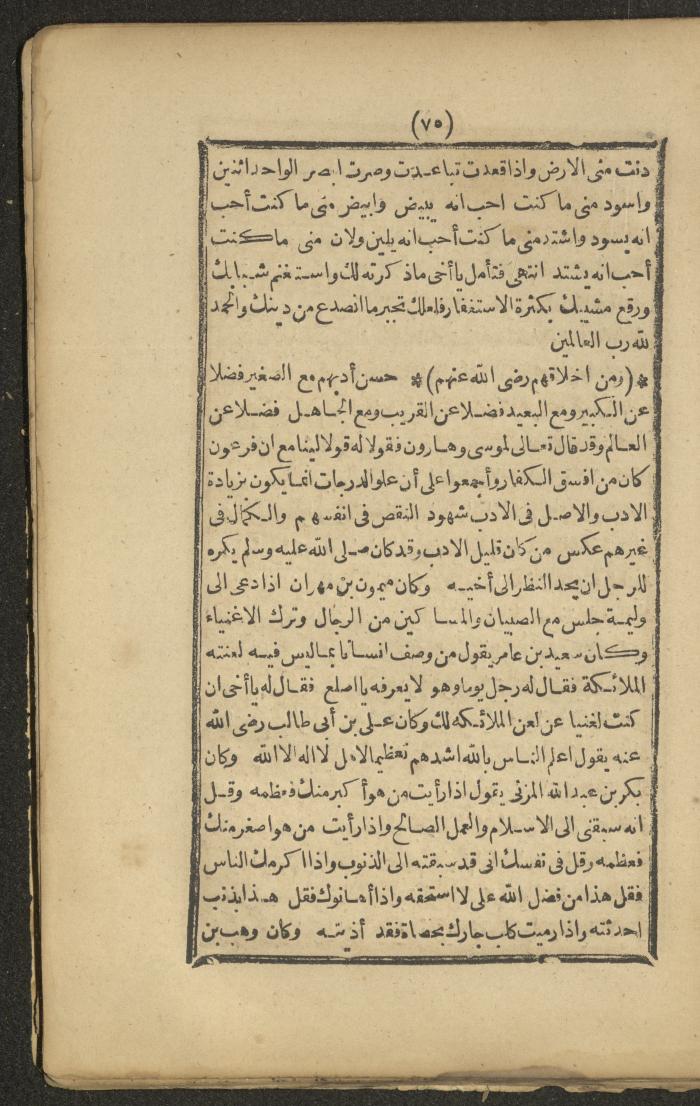 (٧٥)
دنت منى الارض واذا قعدت تباعدت وصرت ابصر الواحد اثنين
واسود منى ما كنت احب انه يبيض وابيض منى ما كنت أحب
انه يسود واشتد منى ما كنت أحب انه يلين ولان منى ما كنت
أحب انه يشتد انتهى فتأمل يا أخى ما ذكرته لك واستغنم شبابك
ورقع مشيبك بكثرة الاستغفار فلعلك تجبر ما انصدع من دينك والحمد
لله رب العالمين
*(ومن اخلاقهم رضى الله عنهم)* حسن أدبهم مع الصغير فضلا
عن الكبير ومع البعيد فضلا عن القريب ومع الجاهل فضلا عن
العالم وقد قال تعالى لموسى وهارون فقولا له قولا لينا مع ان فرعون
كان من افسق الكفار وأجمعوا على أن علو الدرجات انما يكون بزيادة
الادب والاصل فى الادب شهود النقص فى انفسهم والكمال فى
غيرهم عكس من كان قليل الادب وقد كان صلى الله عليه وسلم يكره
للرجل ان يحد النظر الى أخيه وكان ميمون بن مهران اذا دعى الى
وليمة جلس مع الصبيان والمساكين من الرجال وترك الاغنياء
وكان سعيد بن عامر يقول من وصف انسانا بما ليس فيه لعنته
الملائكة فقال له رجل يوما وهو لا يعرفه يا اصلع فقال له يا أخى ان
كنت لغنيا عن لعن الملائكه لك وكان على بن أبى طالب رضى الله
عنه يقول اعلم الناس بالله اشدهم تعظيما لاهل لا اله الا الله وكان
بكر بن عبد الله المزنى يقول اذا رأيت من هو أكبر منك فعظمه وقل
انه سبقنى الى الاسلام والعمل الصالح واذا رأيت من هو اصغر منك
فعظمه وقل فى نفسك انى قد سبقته الى الذنوب واذا اكرمك الناس
فقل هذا من فضل الله على لا استحقه واذا أهانوك فقل هذا بذنب
احدثته واذا رميت كلب جارك بحصاة فقد أذيته وكان وهب بن